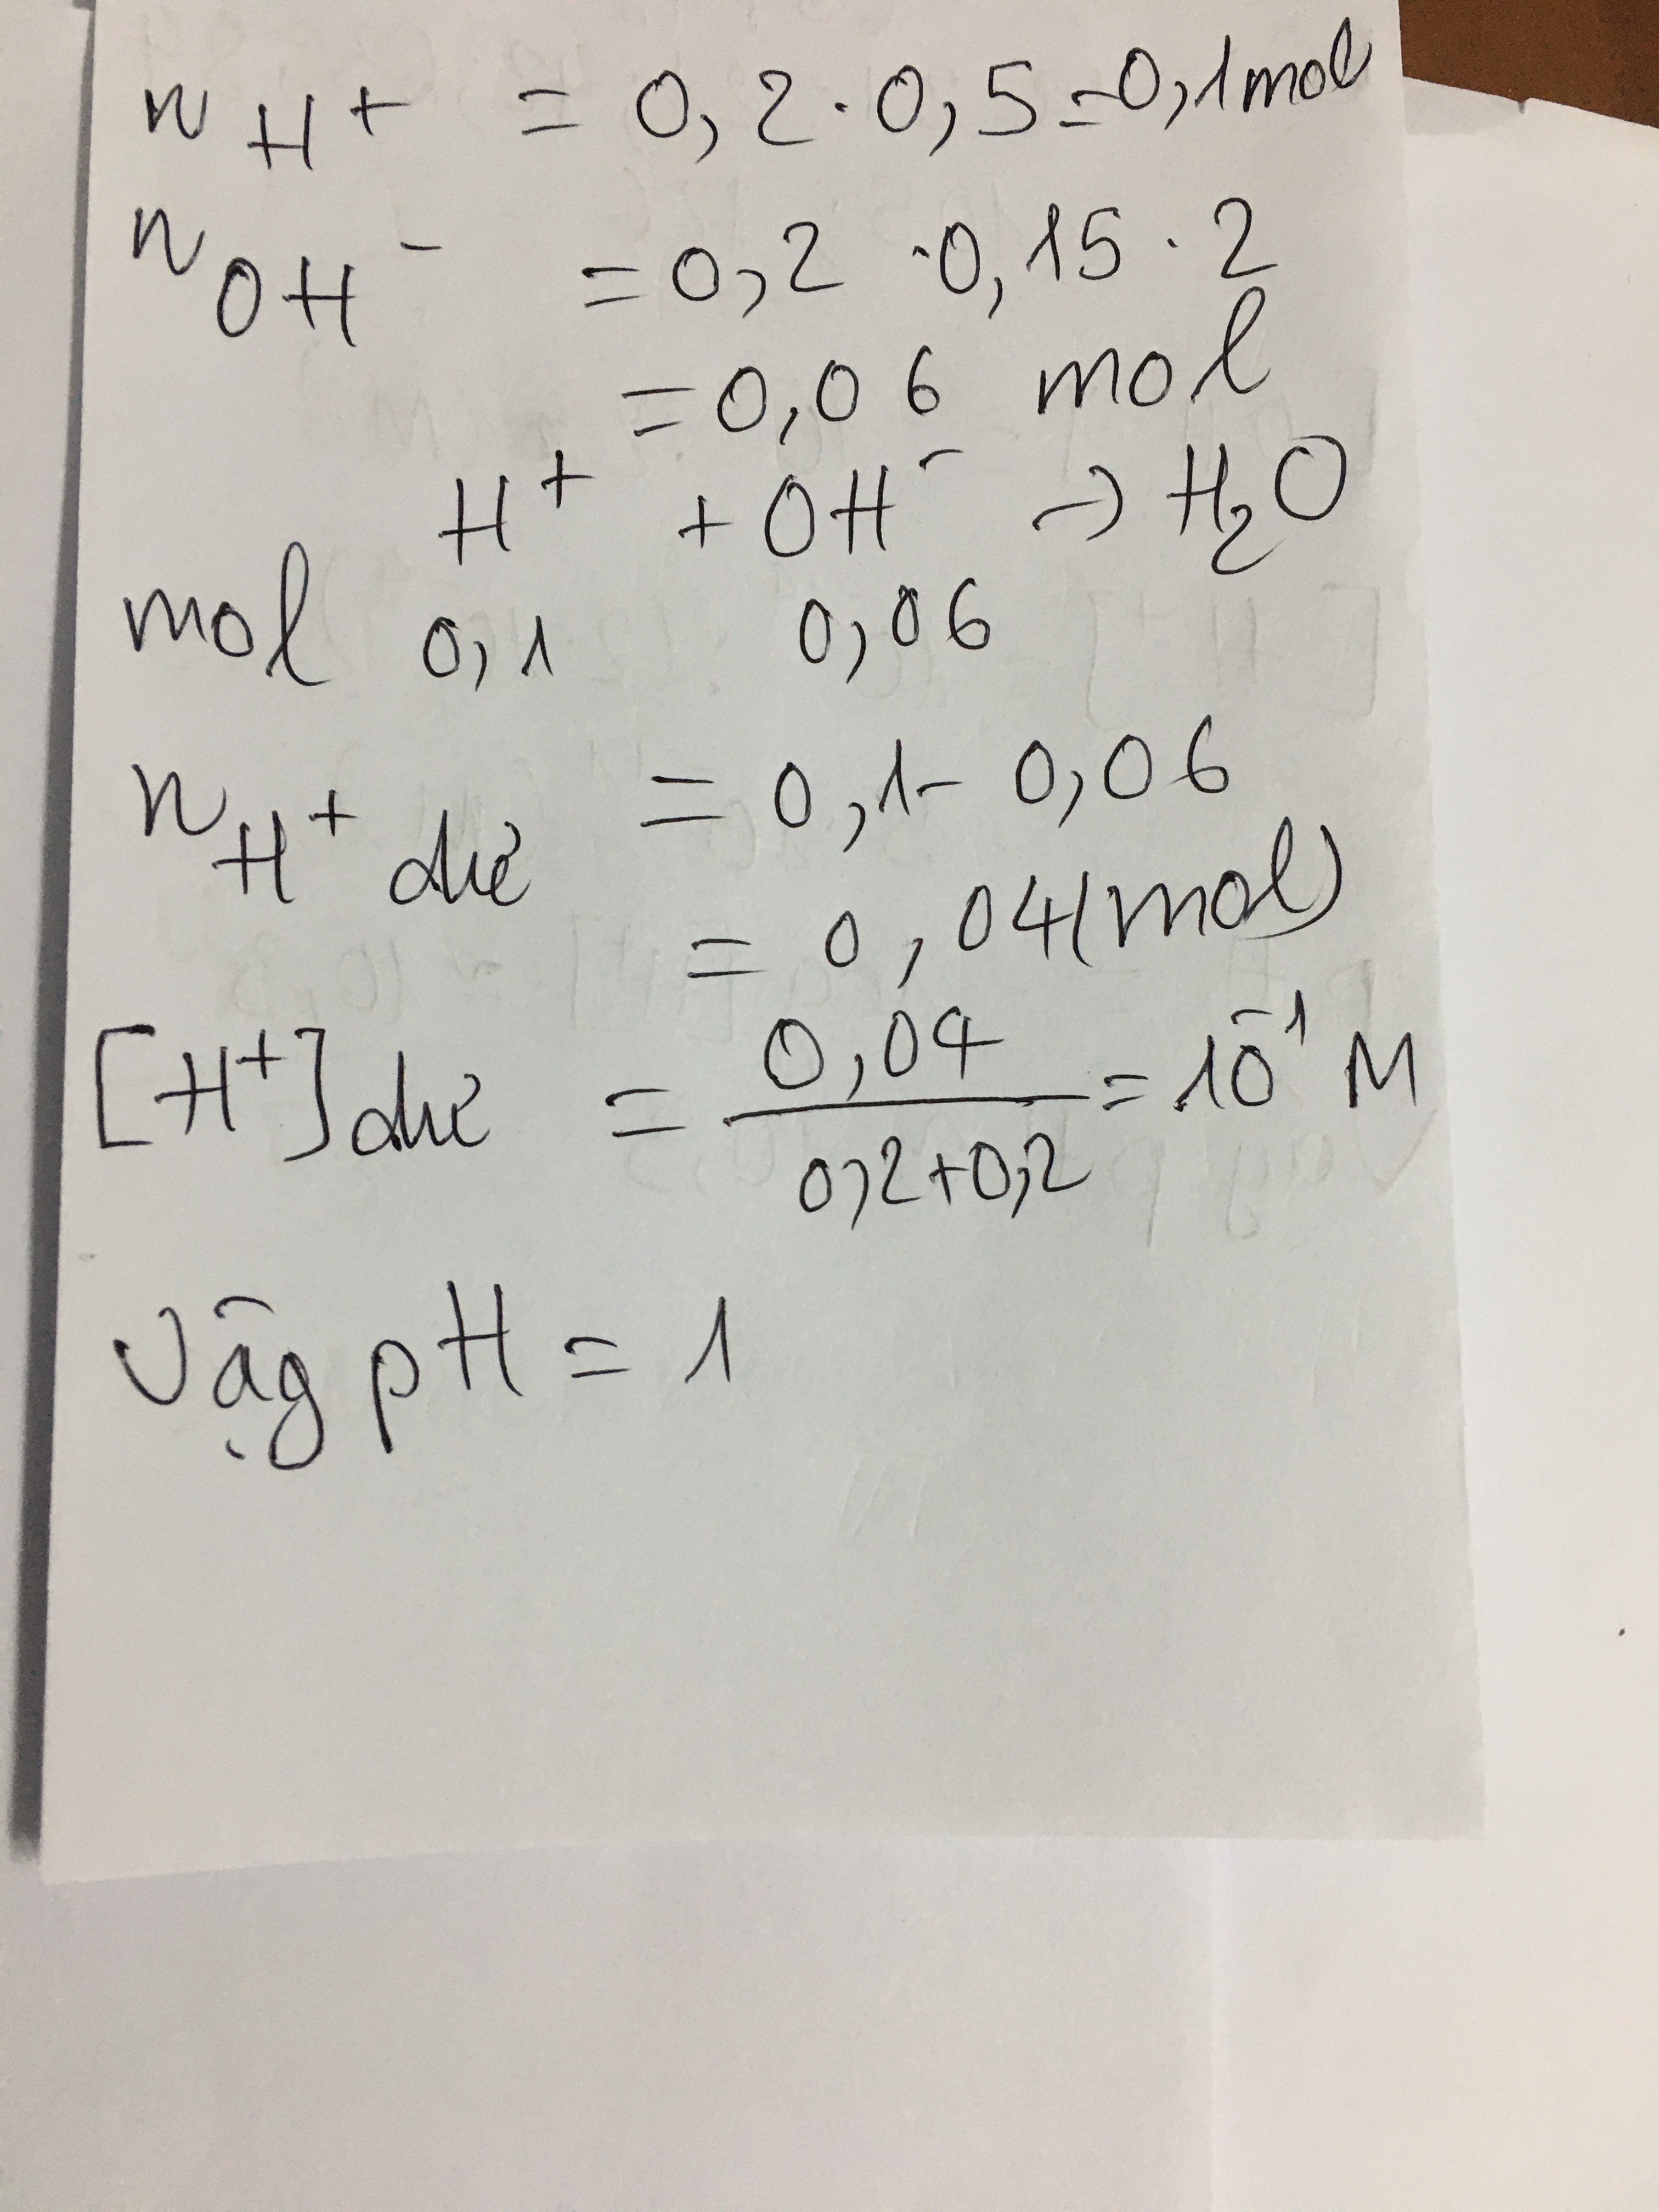 n H+ = 0,2 . 0,5 = 0,1 mol
n OH- = 0,2 . 0,15 . 2
= 0,06 mol
H+ + OH- → H2O
mol 0,1 0,06
n H+ dư = 0,1 - 0,06
= 0,04 (mol)
[H+] dư = 0,04 / 0,2+0,2 = 10^-1 M
Vậy pH = 1